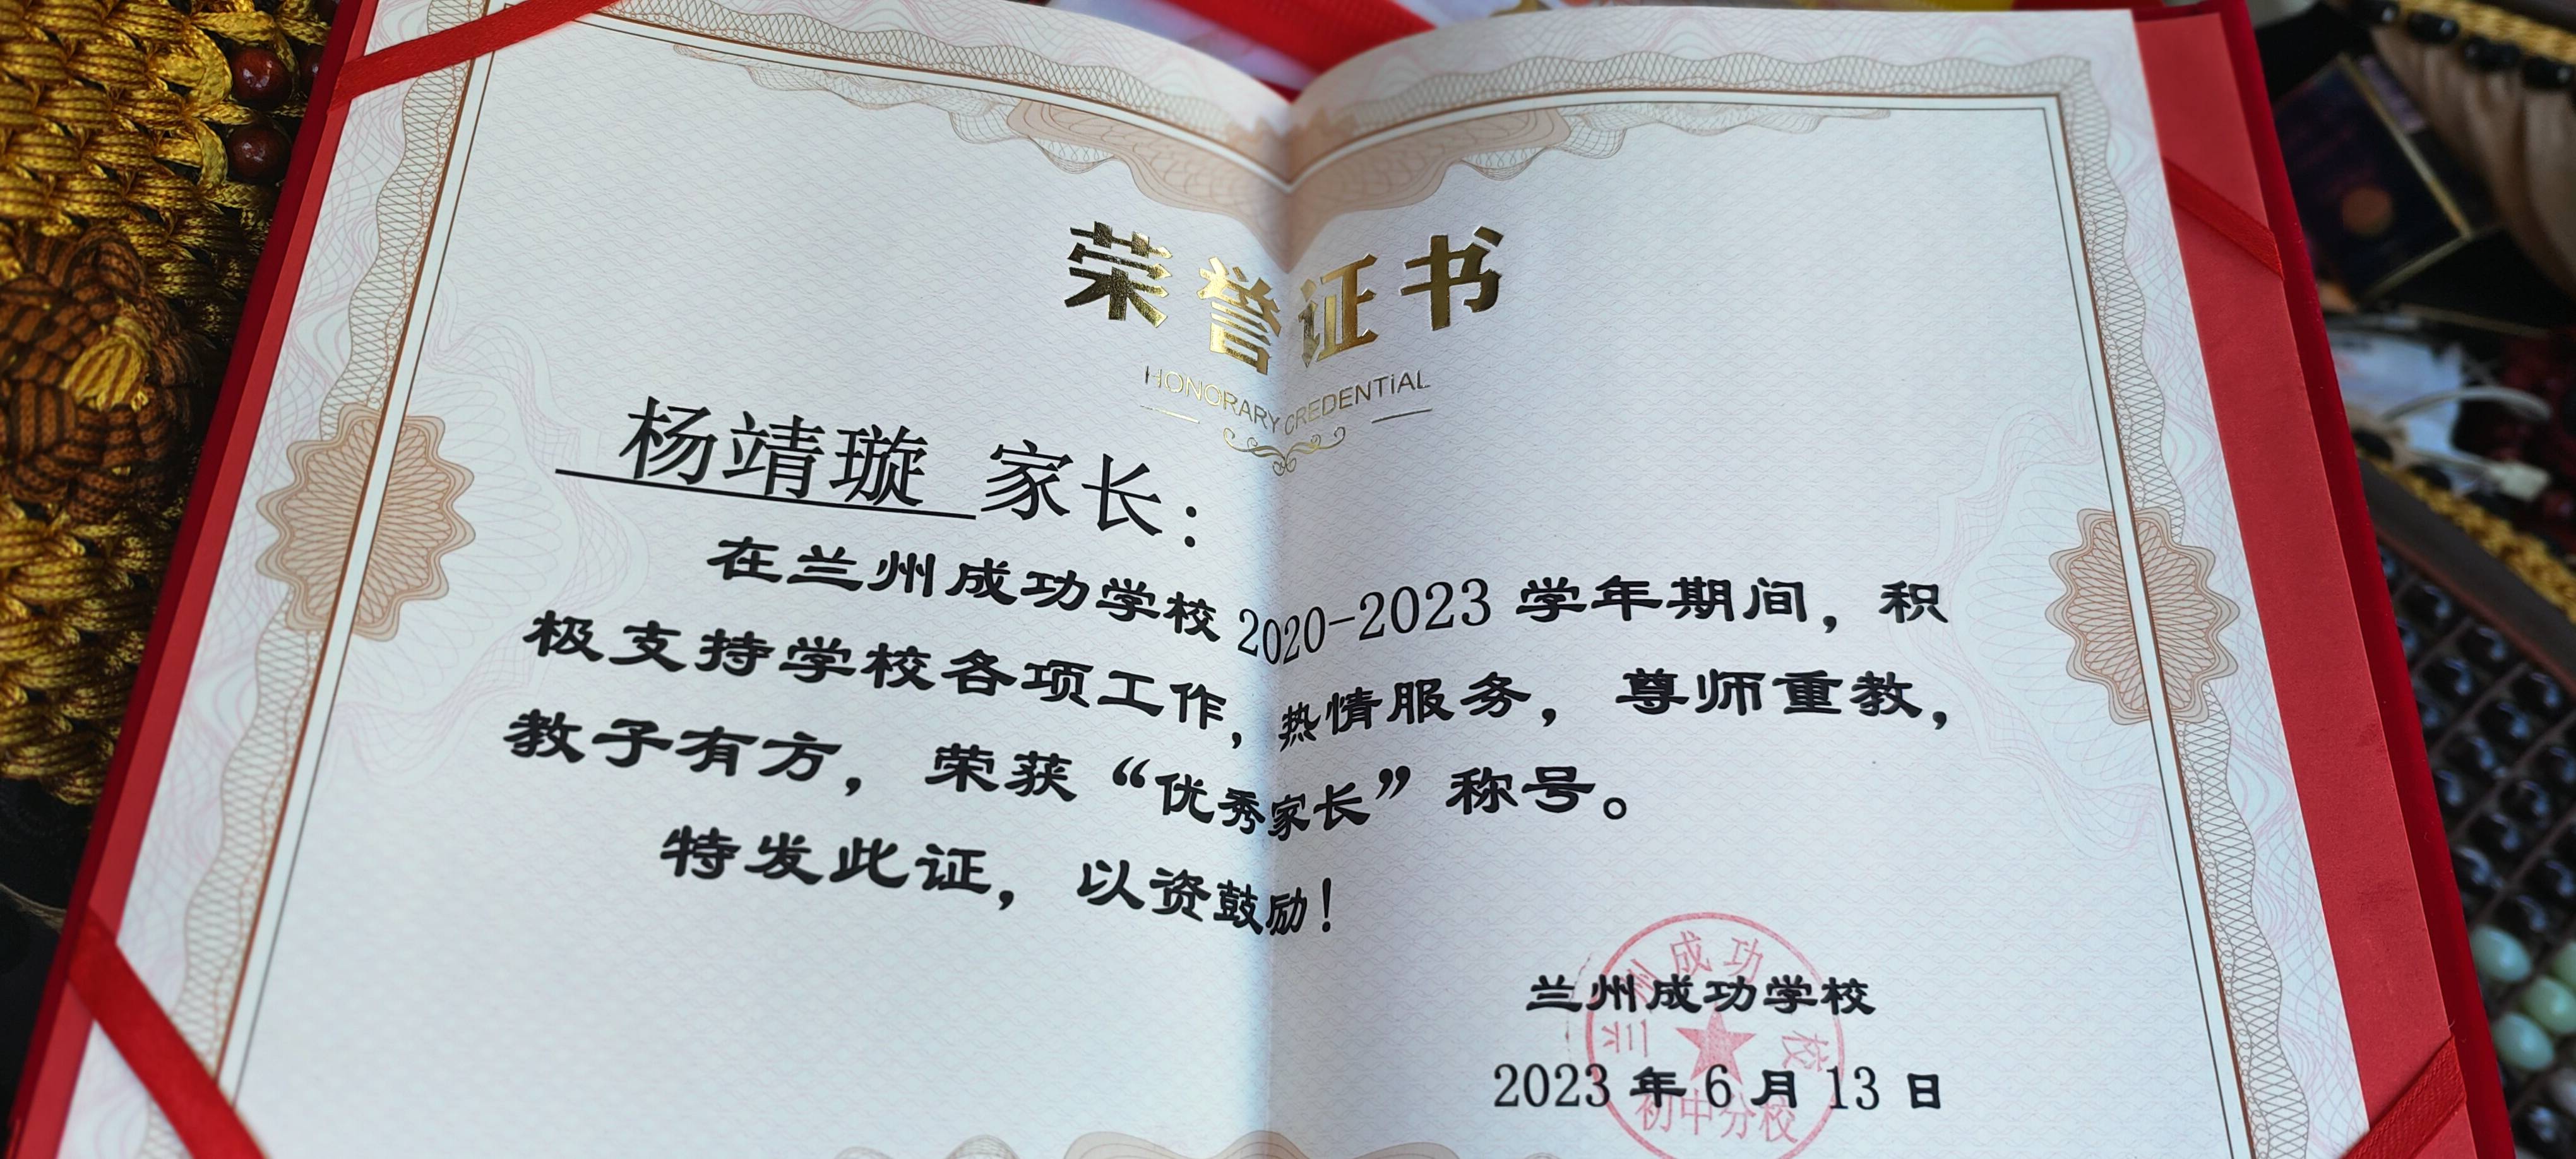 荣誉证书
HONORARY CREDENTiAL
杨靖璇 家长：
在兰州成功学校 2020-2023 学年期间，积
极支持学校各项工作，热情服务，尊师重教，
教子有方，荣获“优秀家长”称号。
特发此证，以资鼓励！
兰州成功学校
2023 年 6 月 13 日
兰州成功 校
初中分校